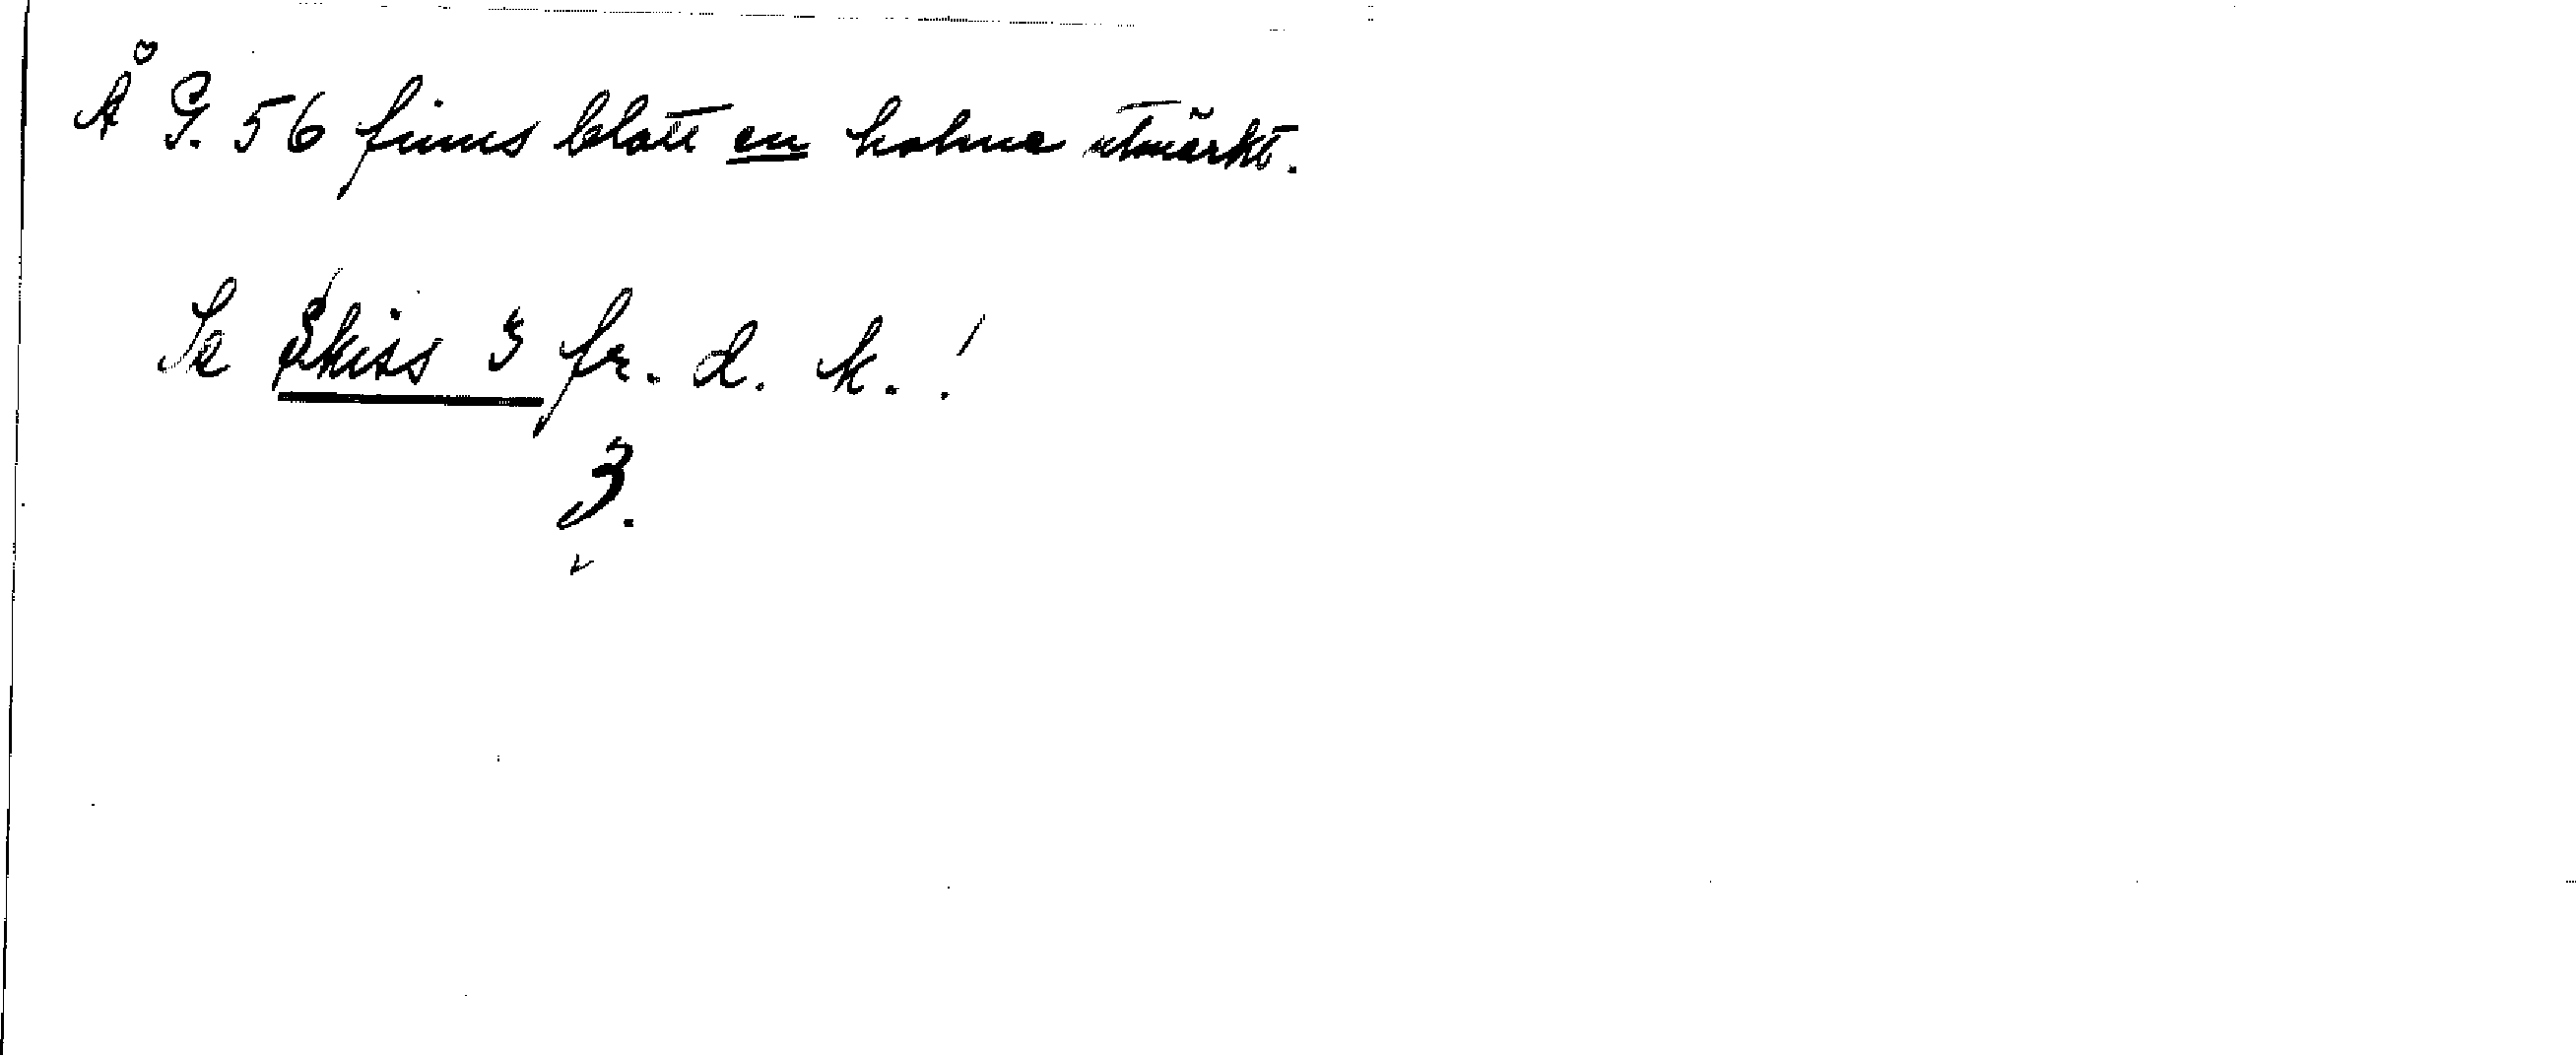 Å G. 56 finns blott en holme utmärkt.
Se Skiss 3 fr. d. k.!
3.